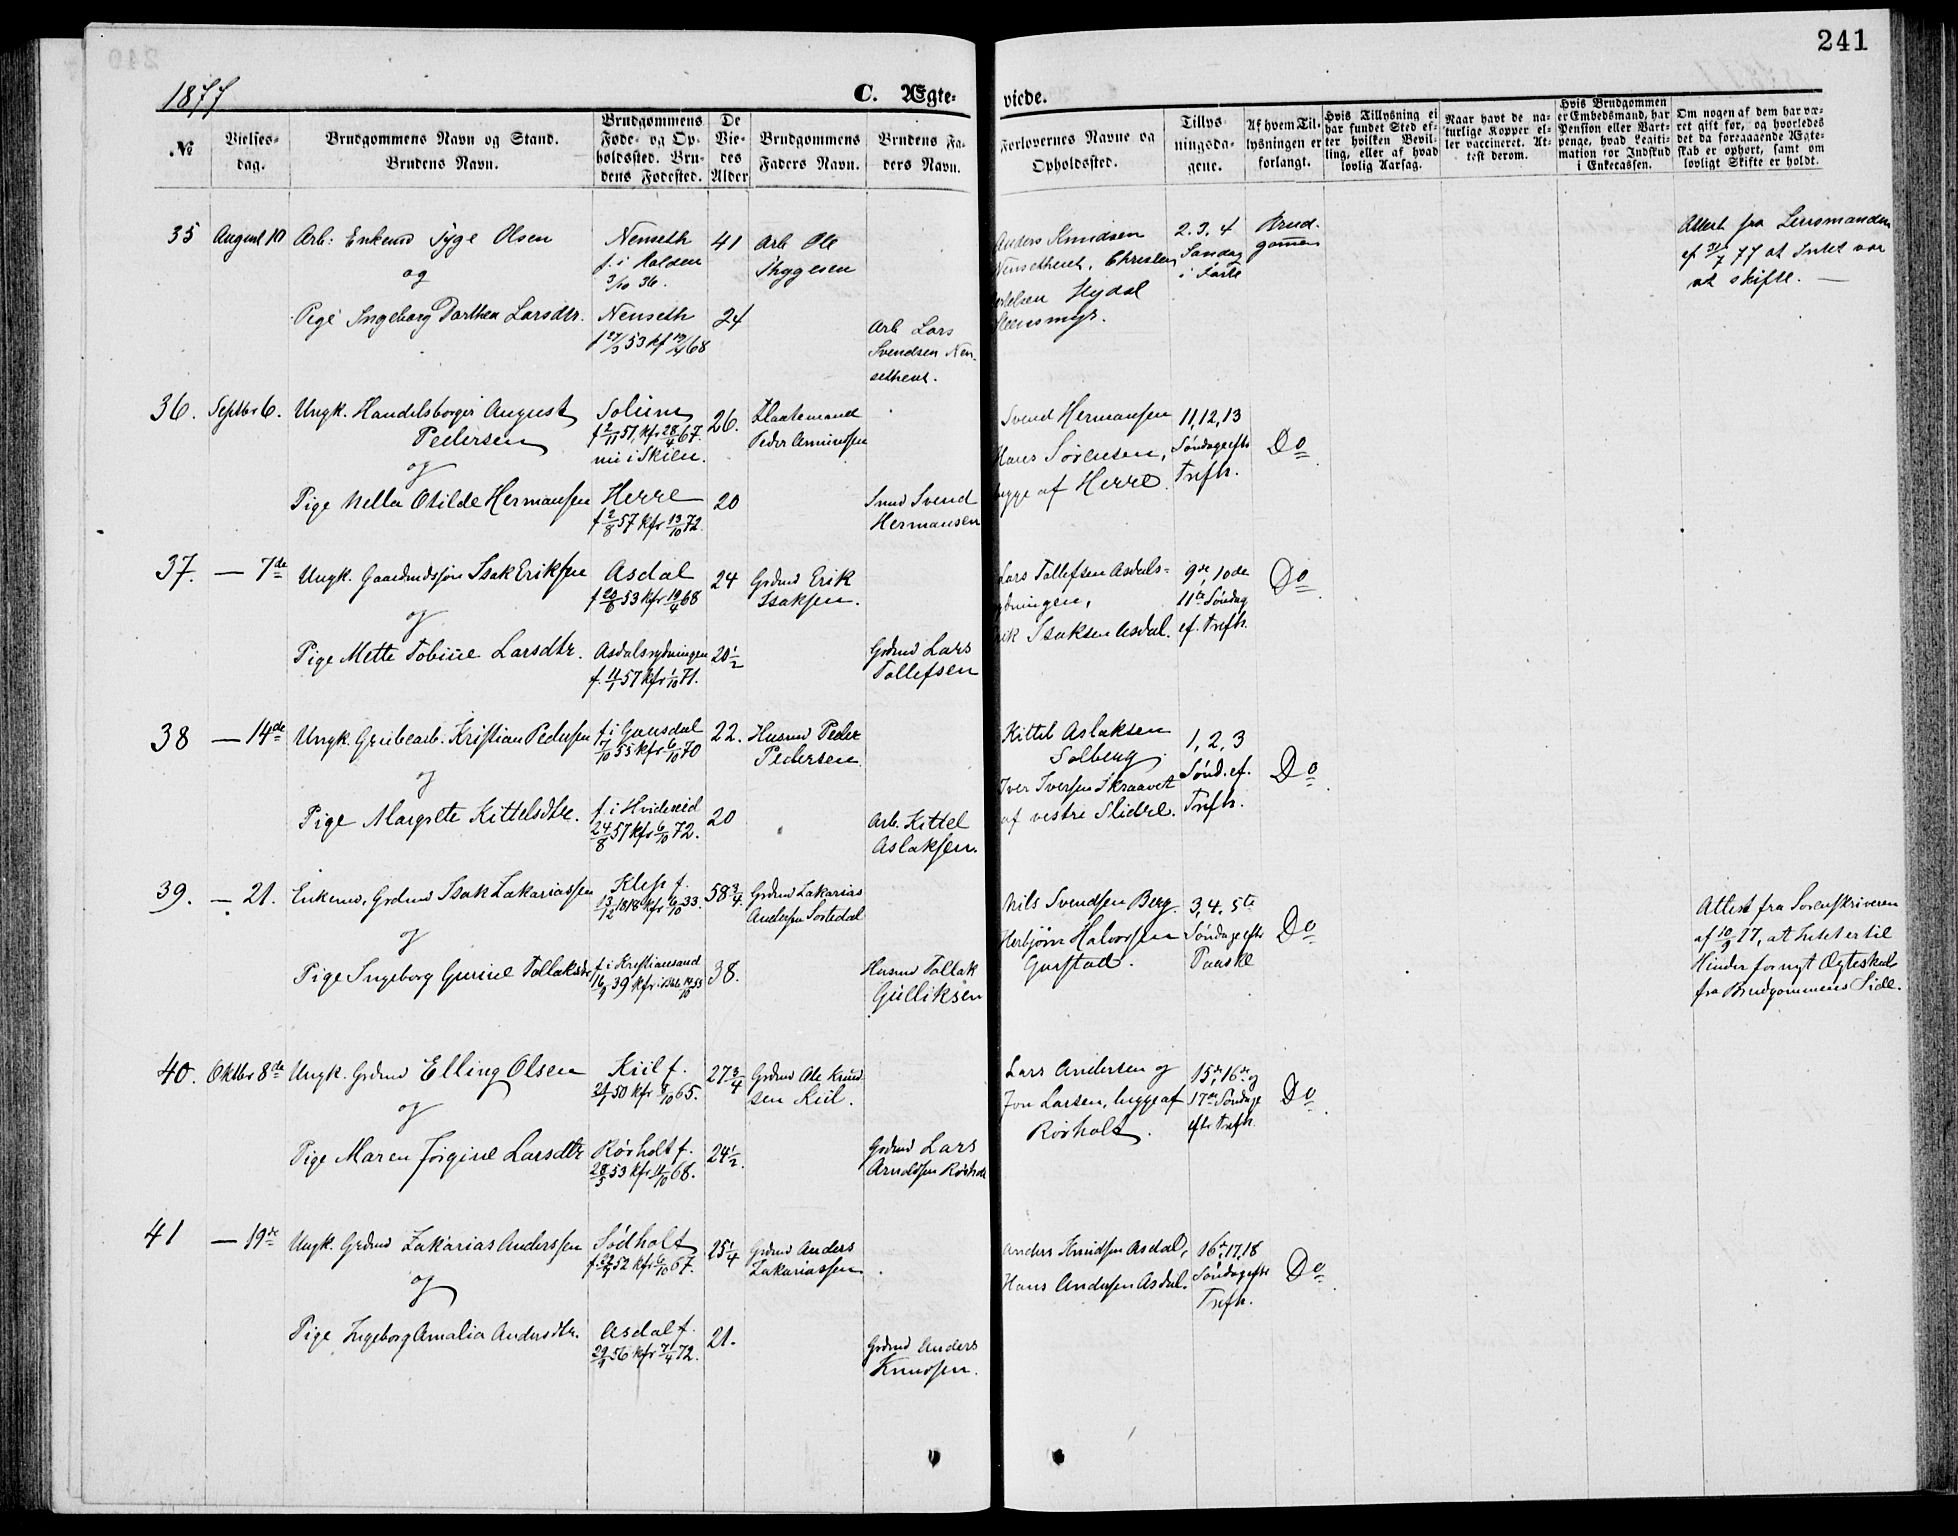 241
1877
C. Ægte-
viede.
№
Vielses-
dag.
Brudgommens Navn og Stand.
Brudens Navn.
Brudgommens
Føde- og Op-
holdssted. Bru-
dens Fødested.
De
Vie-
des
Alder
Brudgommens
Faders Navn.
Brudens Fa-
ders Navn.
Forlovernes Navne og
Opholdssted.
Tillys-
ningsda-
gene.
Af hvem Til-
lysningen er
forlangt.
Hvis Tillysning ei
har fundet Sted ef-
ter hvilken Bevil-
ling, eller af hvad
lovlig Aarsag.
Naar havt de na-
turlige Kopper el-
ler vaccineret. At-
test derom.
Hvis Brudgommen
er Embedsmand, har
Pension eller Vart-
penge, hvad Legiti-
mation for Indskud
i Enkecassen.
Om nogen af dem har væ-
ret gift før, og hvorledes
det da foregaaende Ægte-
skab er ophørt, samt om
lovligt Skifte er holdt.
35
August 10
Arb. Enkemd Tyge Olsen
og
Pige Ingeborg Dorthea Larsdtr.
Nenseth
f. i Holden
3/10 36.
Nenseth
f 27/3 53 kf 19/4 68
41
24
Arb Ole
Thygesen
Arb Lars
Svendsen Nen-
sethent.
Anders Knudsen
Nensethent, Christen
Nielsen Hydal
Steensmyr.
2. 3. 4
Søndag
i Faste
Brud-
gomen
Attest fra Lensmanden
af 31/7 77 at Intet var
at skifte. —
36.
Septbr 6.
Ungk. Handelsborger August
Pedersen
og
Pige Nella Otilde Hermansen
Solum
f 2/11 51, kfr 28/4 67.
nu i Skien.
Herre
f 2/8 57 kfr 13/10 72.
26.
20
Flaatemand
Peder Amundsen
Smed Svend
Hermansen
Svend Hermansen
Hans Sørensen,
begge af Herre.
11, 12, 13
Søndage eftr
Trefh.
Do
37.
— 7de
Ungk. Gaardmdssøn Isak Eriksen
og
Pige Mette Tobine Larsdtr.
Asdal
f 20/6 53 kfr 19/4 68
Asdalsrydningen
f. 11/1 57 kfr 1/10 71.
24
20 1/2
Grdmd Erik
Isaksen.
Grdmd Lars
Tollefsen
Lars Tollefsen Asdals-
rydningen,
Erik Isaksen Asdal.
9de, 10de
11te Søndag
ef. Trefh.
Do
38
— 14de
Ungk. Grubearb. Kristian Pedersen
og
Pige Margrete Kittelsdtr.
f. i Gausdal
7/10 55 kfr 6/10 70
f. i Hvideseid
24/8 57 kfr 6/10 72.
22.
20
Husmd Peder
Pedersen
Arb. Kittel
Aslaksen.
Kittel Aslaksen
Solberg
Iver Iversen Skraavet
af vestre Slidre.
1, 2, 3
Sønd. ef.
Trefh.
Do
39.
— 21.
Enkemd, Grdmd Isak Zakariassen
og
Pige Ingeborg Gurine Tollaksdtr
Klep f.
13/12 1818 kfr 6/10 33.
f. i Kristiansand
16/9 39 kfr i Bble 14/10 55
58 3/4.
38.
Grdmd Zakarias
Andersen Sortedal
Husmd Tollak
Gulliksen
Nils Svendsen Berg.
Herbjørn Halvorsen
Gurstad.
3, 4, 5te
Søndage eftr
Paaske
Do
Attest fra Sorenskriveren
af 10/9 77, at Intet er til
Hinder for nyt Ægteskab
fra Brudgommens Side.
40.
Oktbr 8de
Ungk. Grdmd Elling Olsen
og
Pige Maren Jørgine Larsdtr
Kiil f.
21/1 50 kfr 8/10 65.
Rörholt f.
28/3 53 kfr 11/10 68.
27 3/4
24 1/2.
Grdmd Ole Knud
sen Kiil.
Grdmd Lars
Arnoldsen Rörholt
Lars Andersen og
Jon Larsen, begge af
Rörholt.
15de, 16de og
17de Søndage
eftr Trefh.
Do
41
— 19de
Ungk. Grdmd Zakarias Anderssen
og
Pige Ingeborg Amalia Andersdtr.
Sødholt
f. 22/7 52 kfr 6/10 67.
Asdal f.
29/9 56 kfr 7/4 72.
25 1/4
21.
Grdmd Anders
Zakariassen
Grdmd Anders
Knudsen.
Anders Knudsen Asdal,
Hans Andersen Asdal.
16de, 17, 18
Søndag eftr
Trefh.
Do